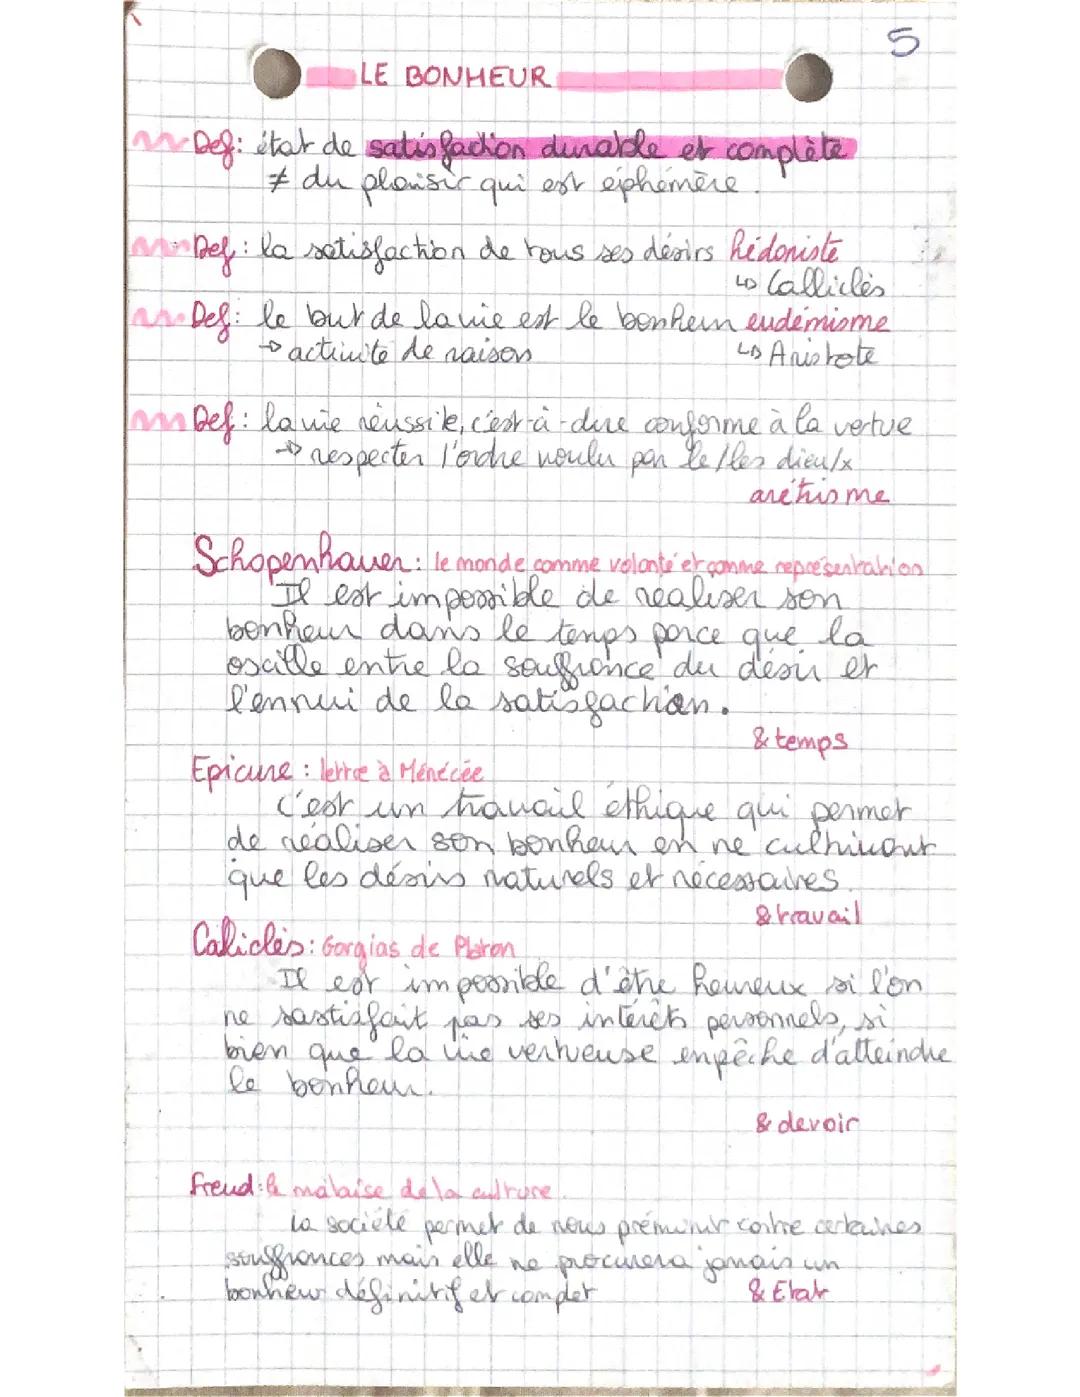 5
LE BONHEUR
Def: état de satisfaction durable et complète
≠ du plaisir qui est éphémère.
Def: la satisfaction de tous ses désirs hédoniste
↳ Calliclès
Def: le but de la vie est le bonheur eudémisme
→ activité de raison ↳ Aristote
Def: la vie réussite, c'est-à-dire conforme à la vertue
→ respecter l'ordre voulu par le/les dieu/x
aréthisme
Schopenhauer: le monde comme volonté et comme représentation
Il est impossible de réaliser son
bonheur dans le temps parce que la
oscille entre la souffrance du désir et
l'ennui de la satisfaction.
& temps
Epicure: lettre à Ménécée
C'est un travail éthique qui permet
de réaliser son bonheur en ne cultivant
que les désirs naturels et nécessaires.
& travail
Caliclès: Gorgias de Platon
Il est impossible d'être heureux si l'on
ne sastisfait pas ses intérêts personnels, si
bien que la vie vertueuse enpêche d'atteindre
le bonheur.
& devoir
Freud: le malaise de la culture
La société permet de nous prémunir contre certaines
souffrances mais elle ne procurera jamais un
bonheur définitif et complet
& Etat